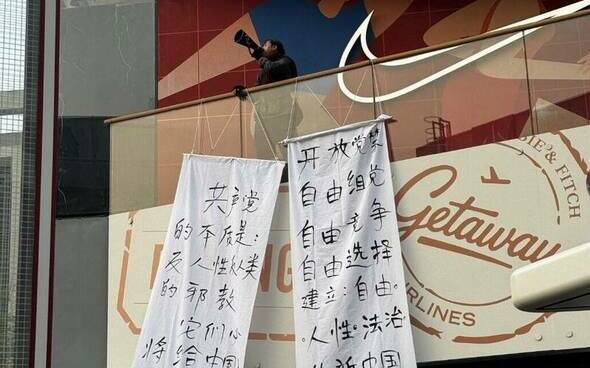 共产党
的本质是：
反人性 类
的邪教
它们
将给中国
开放党禁
自由组党
自由竞争
自由选择
建立：自由。
。人性。法治
新中国
IE & FITCH
Getaway
IRLINES